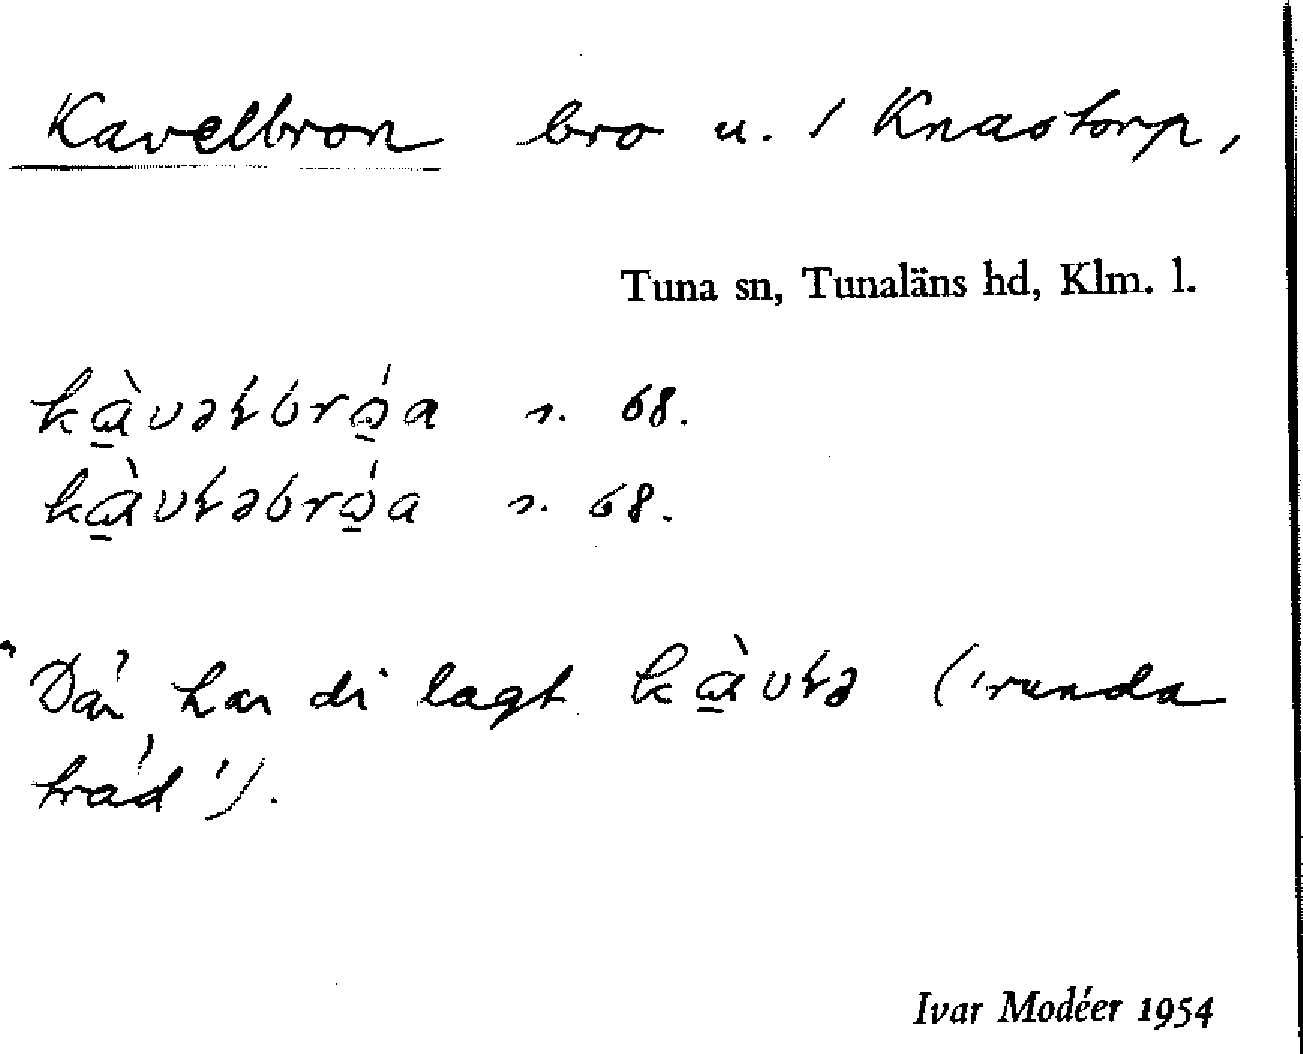 Kavelbron bro u. / Knastorp,
Tuna sn, Tunaläns hd, Klm. l.
kὰ̱vəɫbrώ̱a s. 68.
kὰ̱vɫəbrώ̱a s. 68.
"Där har di lagt kὰ̱vɫə ('runda
träd').
Ivar Modéer 1954